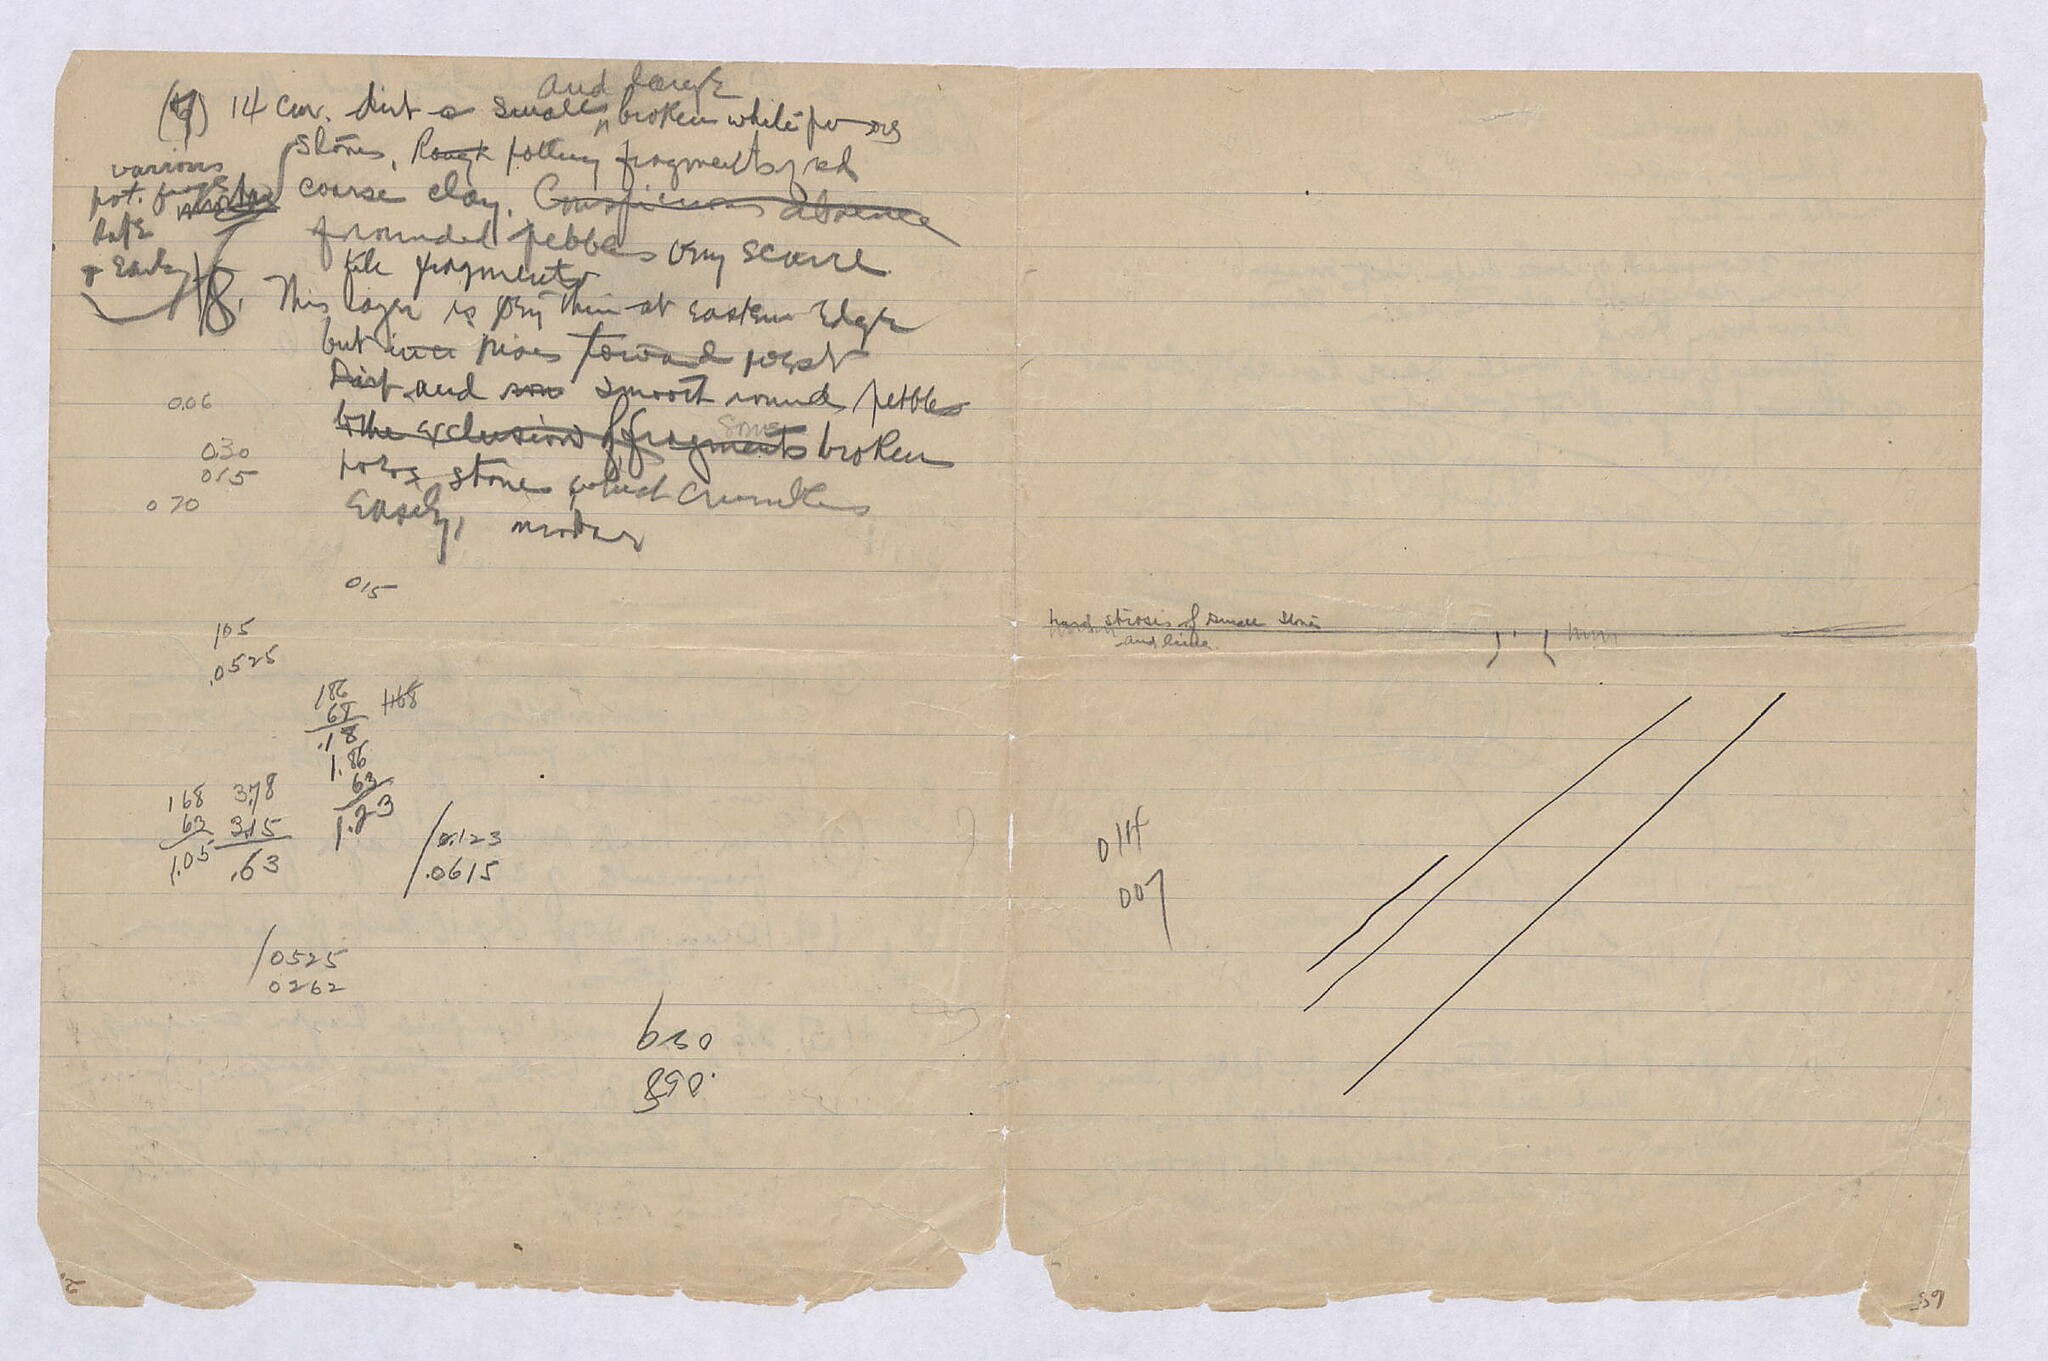 and large
(7) 14 cm. dirt & small broken white poros
stones, Rough pottery fragments, red
coarse clay. Conspicuous absence
of rounded pebbles very scarce
tile fragments
various
pot. frags
late
& early
8. This layer is very thin at eastern edge
but incr rises toward west
Dirt and som smooth round pebbles
to the exclusion of fragments some broken
poros stones which crumbles
easily,
0.06
0.30
015
0 70
015
105
.0525
186
68
.18
1168
1.86
63
1.23
168 3.78
63 3.15
1.05 .63
0.123
.0615
0525
0262
630
890.
hard strosis of small stones
and lime
014
007